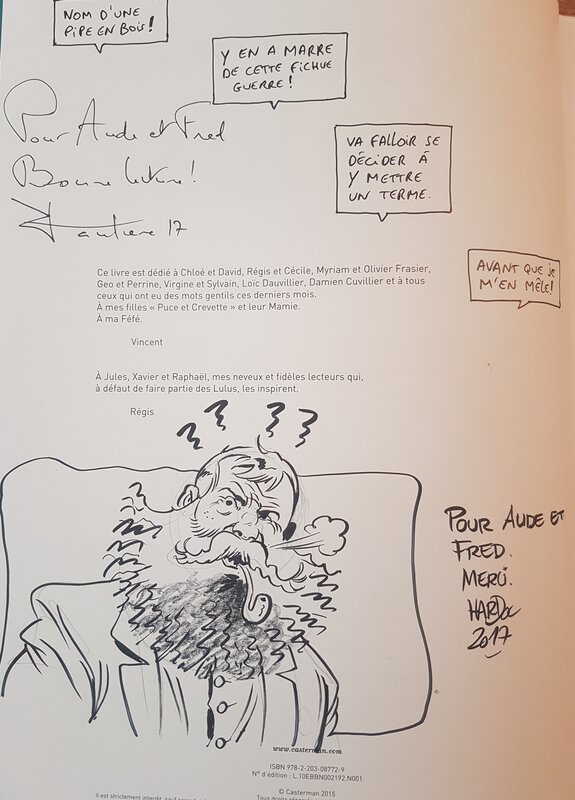 NOM D'UNE
PIPE EN BOIS!
Y EN A MARRE
DE CETTE FICHUE
GUERRE!
Pour Aude et Fred
Bonne lecture!
Hautière 17
VA FALLOIR SE
DÉCIDER À
Y METTRE
UN TERME.
AVANT QUE JE
M'EN MÊLE!
Ce livre est dédié à Chloé et David, Régis et Cécile, Myriam et Olivier Frasier,
Geo et Perrine, Virgine et Sylvain, Loïc Dauvillier, Damien Cuvillier et à tous
ceux qui ont eu des mots gentils ces derniers mois.
À mes filles « Puce et Crevette » et leur Mamie.
À ma Féfé.
Vincent
À Jules, Xavier et Raphaël, mes neveux et fidèles lecteurs qui,
à défaut de faire partie des Lulus, les inspirent.
Régis
POUR AUDE ET
FRED.
MERCI.
HARDOC
2017
www.casterman.com
ISBN 978-2-203-08772-9
N° d'édition : L.10EBBN002192.N001
© Casterman 2015
Tous droits
Il est strictement interdit, sauf